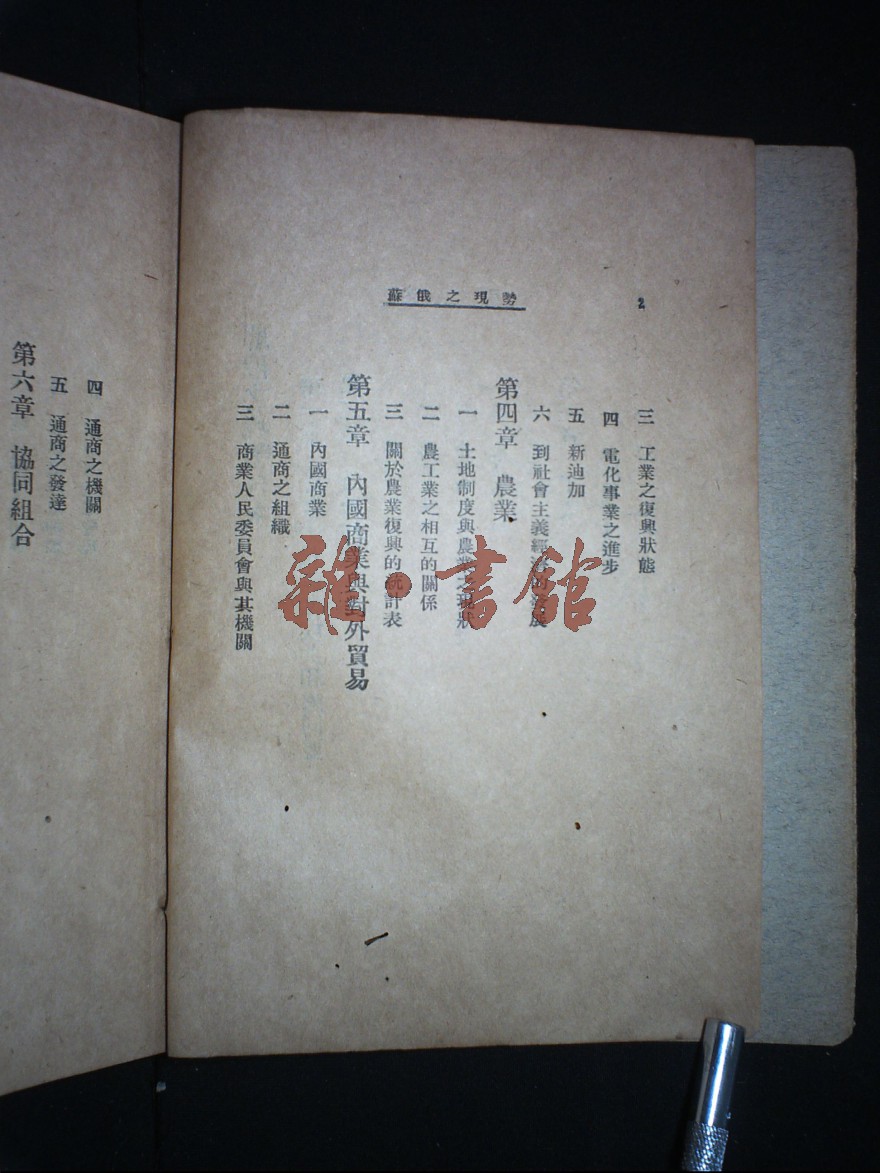 蘇俄之現勢
2
三 工業之復興狀態
四 電化事業之進步
五 新迪加
六 到社會主義經濟的發展
第四章 農業
一 土地制度與農業之現狀
二 農工業之相互的關係
三 關於農業復興的統計表
第五章 內國商業與對外貿易
一 內國商業
二 通商之組織
三 商業人民委員會與其機關
四 通商之機關
五 通商之發達
第六章 協同組合
雜·書館